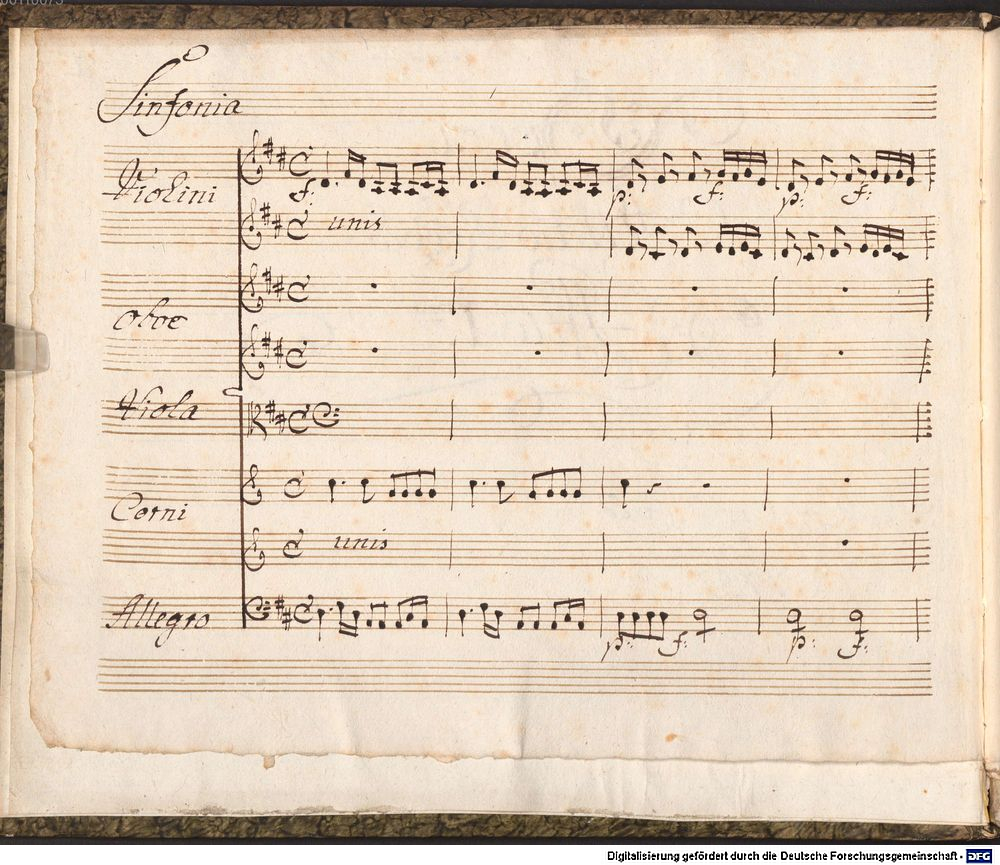 Sinfonia
Violini
f:
p:
f:
p:
f:
unis
Oboe
Viola
Corni
unis
Allegro
p:
f:
p:
f:
Digitalisierung gefördert durch die Deutsche Forschungsgemeinschaft - DFG